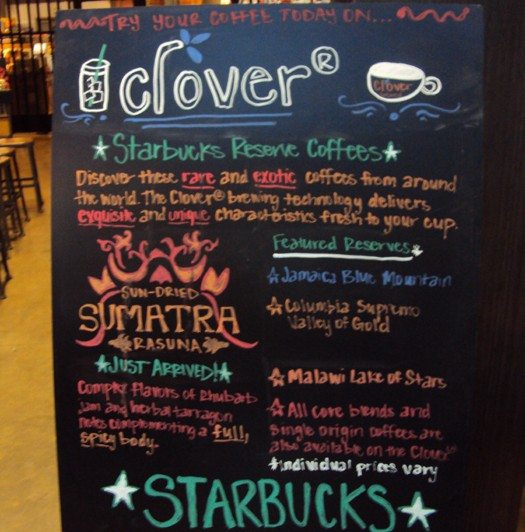 TRY YOUR COFFEE TODAY ON...
clover®
clover
Starbucks Reserve Coffees
Discover these rare and exotic coffees from around
the world. The Clover® brewing technology delivers
exquisite and unique characteristics fresh to your cup.
SUN-DRIED
SUMATRA
RASUNA
JUST ARRIVED!
Complex flavors of Rhubarb
Jam and herbal tarragon
notes complementing a full,
spicy body.
Featured Reserves:
Jamaica Blue Mountain
Columbia Supremo
Valley of Gold
Malawi Lake of Stars
All core blends and
single origin coffees are
also available on the Clover®
*Individual prices vary
STARBUCKS